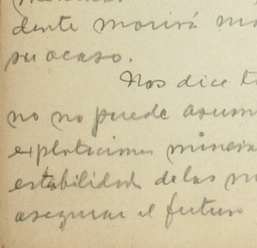 dente morirá
su ocaso.
Nos dice
no no puede asum
explotaciones minera
estabilidad de las
asegurar el futuro